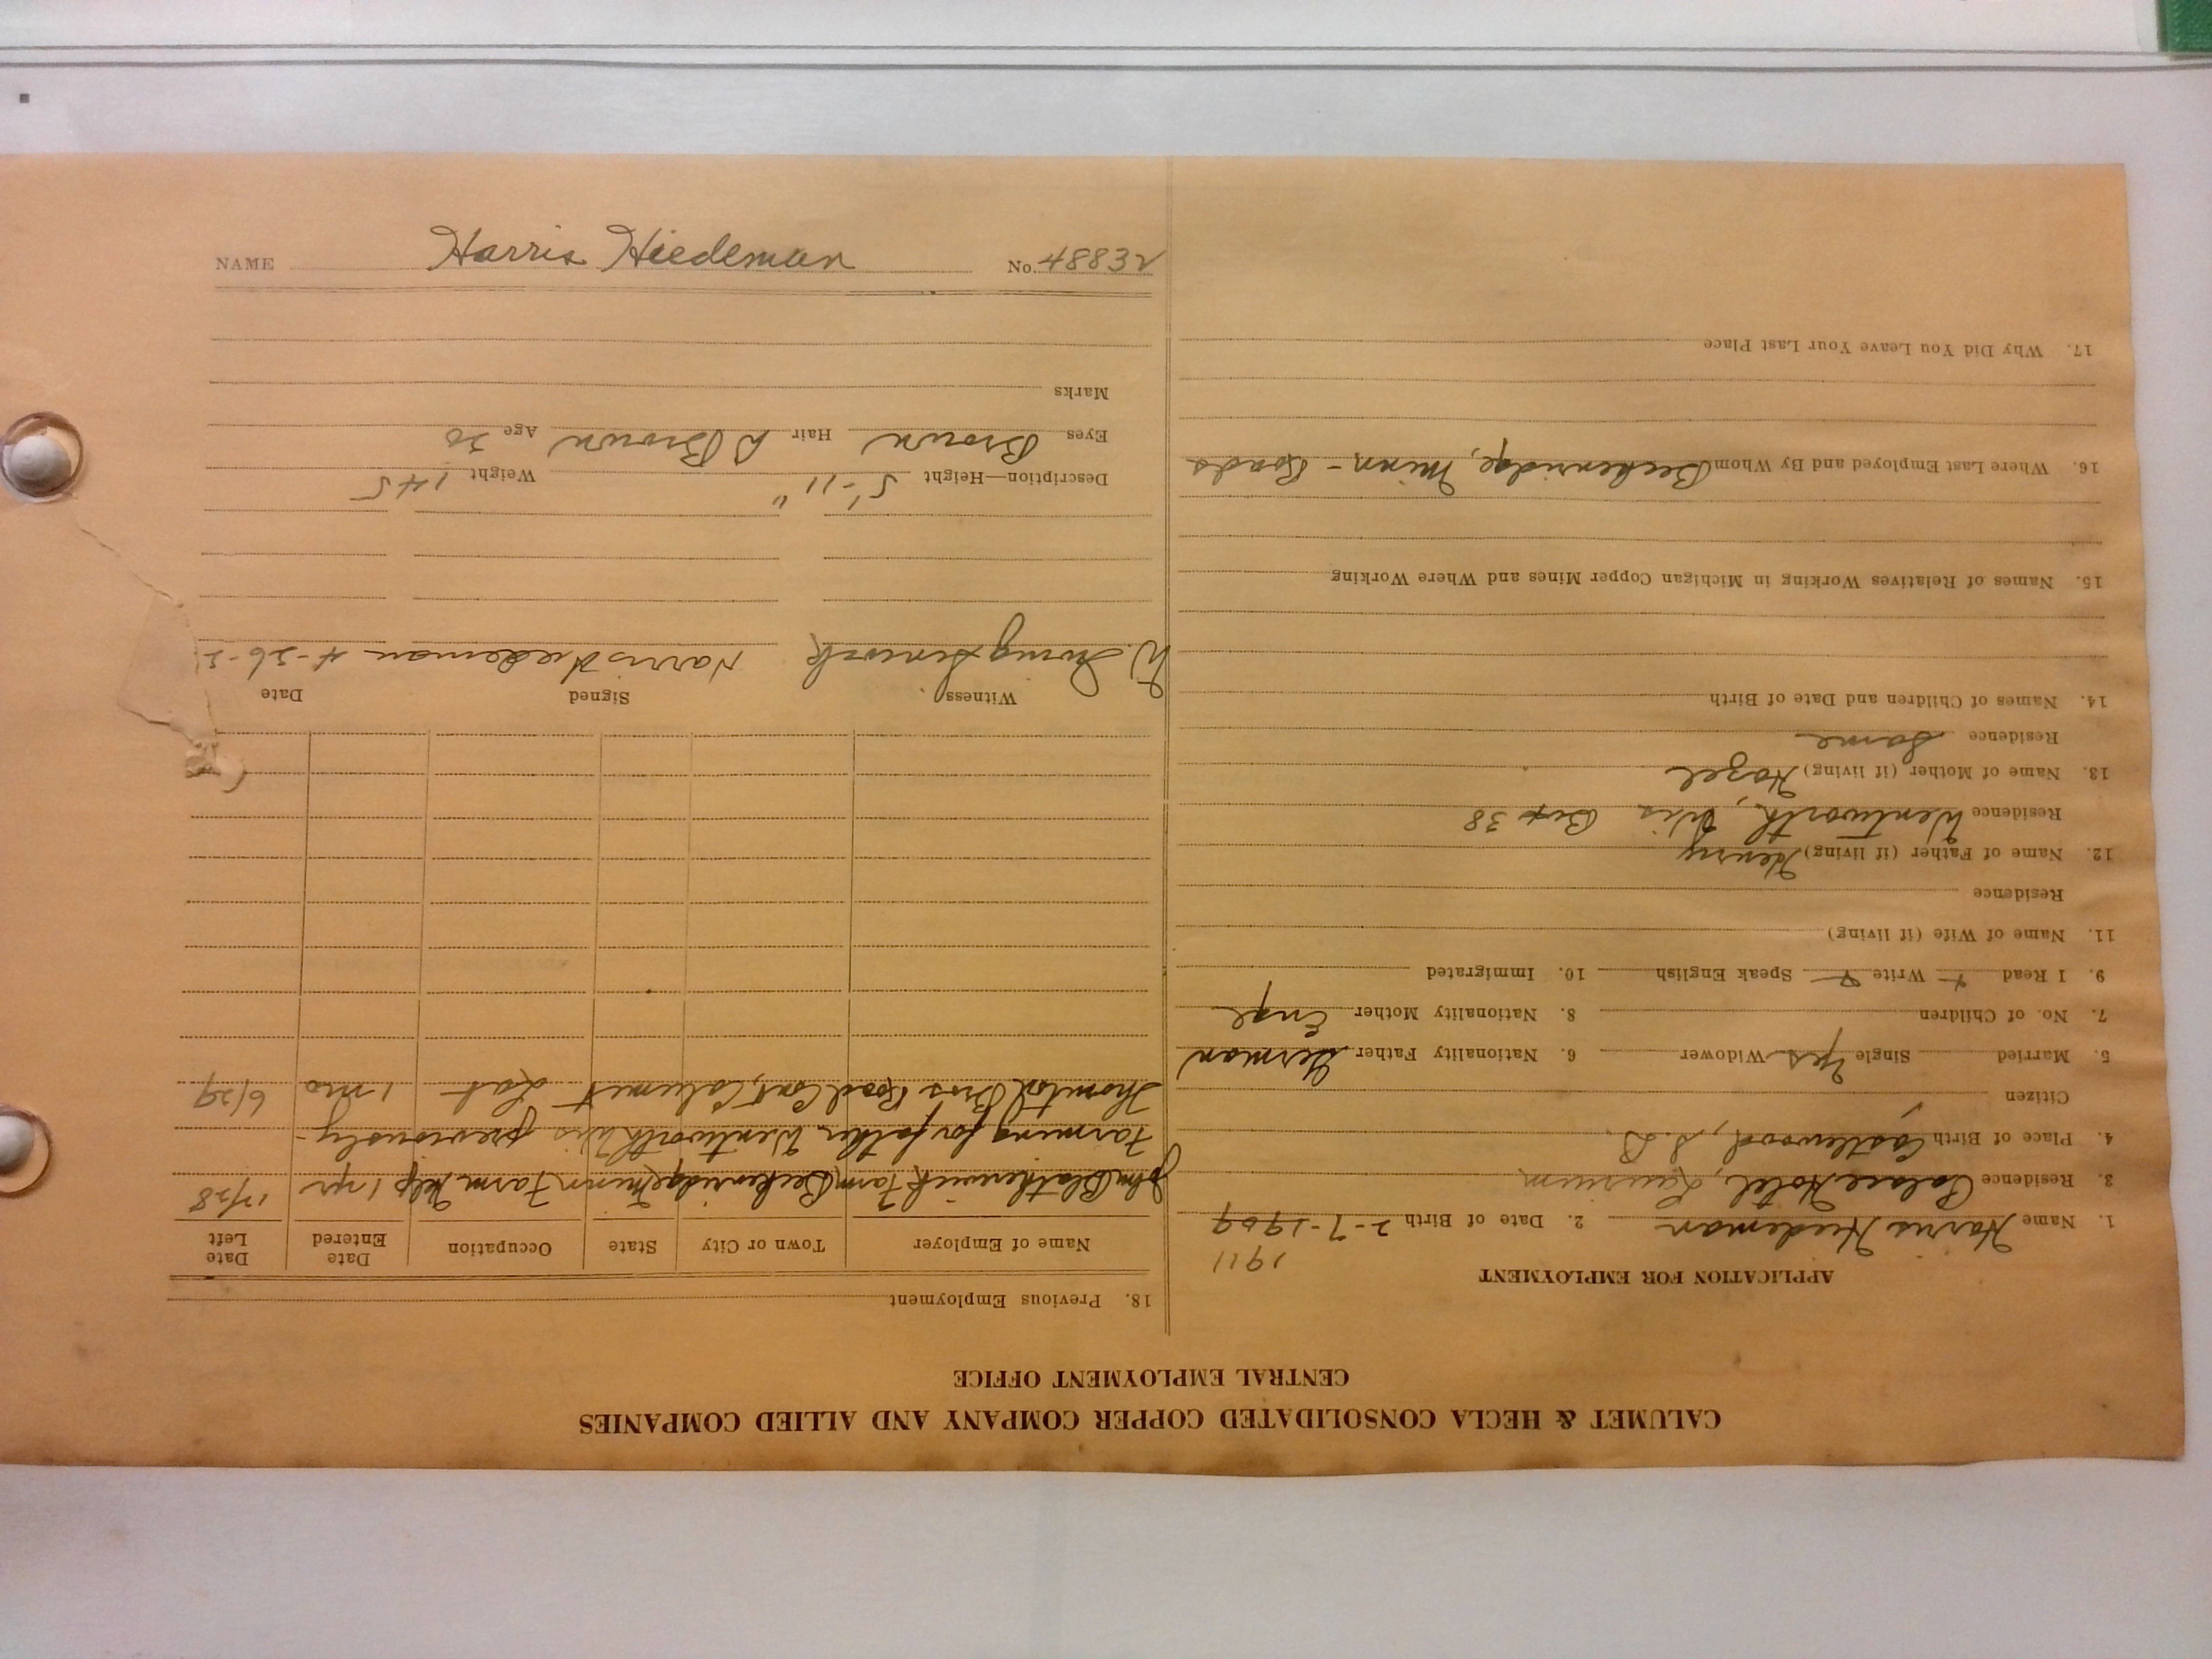 CALUMET & HECLA CONSOLIDATED COPPER COMPANY AND ALLIED COMPANIES
CENTRAL EMPLOYMENT OFFICE
APPLICATION FOR EMPLOYMENT
1911
1. Name Harris Hiedeman 2. Date of Birth 2-7-1909
3. Residence Palace Hotel, Laurium
4. Place of Birth Castlewood, S.D.
Citizen
5. Married Single Yes Widower 6. Nationality Father German
7. No. of Children 8. Nationality Mother Engl
9. I Read + Write + Speak English 10. Immigrated
11. Name of Wife (if living)
Residence
12. Name of Father (if living) Henry
Residence Wentworth, Wis Box 38
13. Name of Mother (if living) Hazel
Residence Same
14. Names of Children and Date of Birth
15. Names of Relatives Working in Michigan Copper Mines and Where Working
16. Where Last Employed and By Whom Beckenridge, Minn - Roads
17. Why Did You Leave Your Last Place
18. Previous Employment
Name of Employer Town or City State Occupation Date Entered Date Left
John Blatherwick Farm Beckenridge Minn Farm Help 1 yr 12/28
Farming for father Wentworth Wis previously-
Bros Road Cont, Calumet Lab 1 mo 6/29
Witness Signed Date
W. Harris Hiedeman 4-26-
Description—Height 5'-11" Weight 145
Eyes Brown Hair D Brown Age 20
Marks
NAME Harris Hiedeman No. 48832